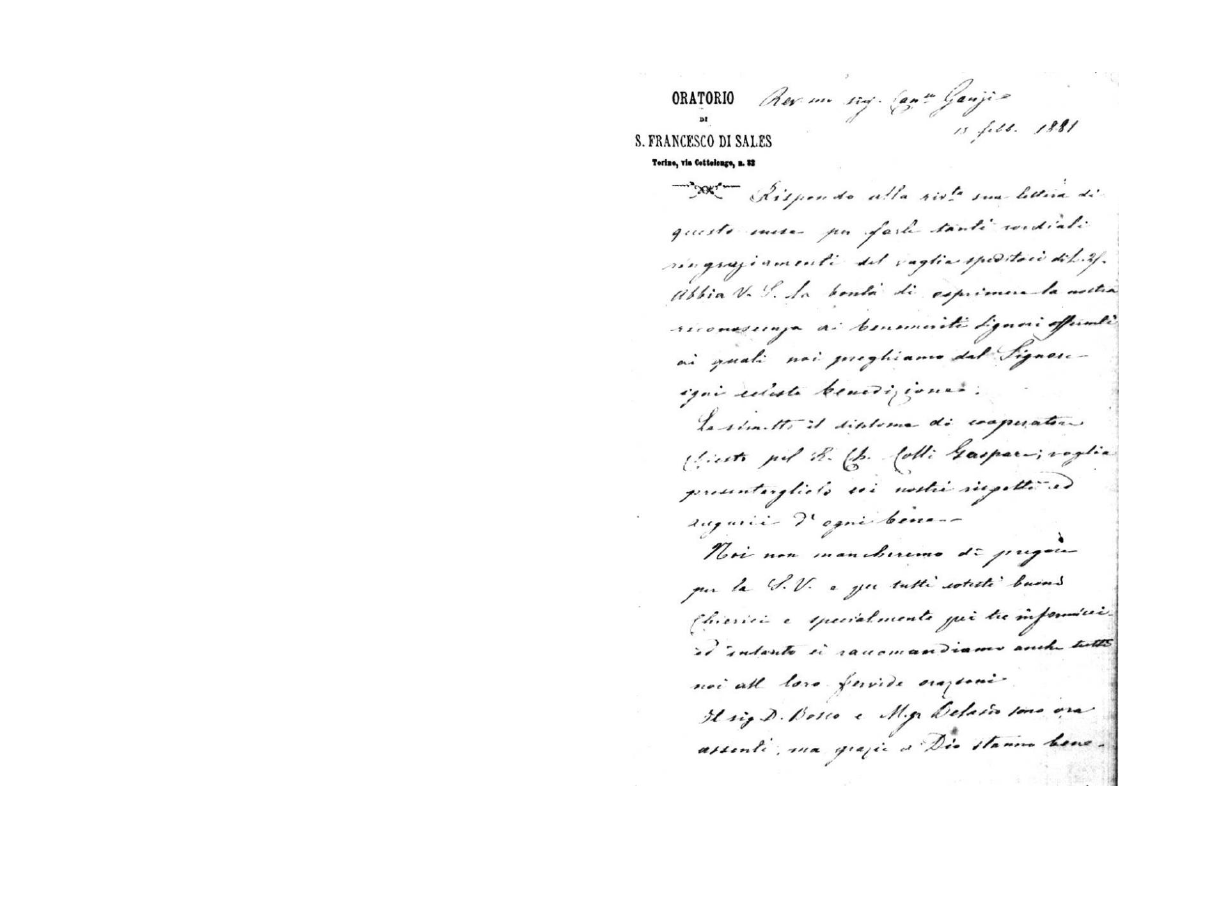 ORATORIO
DI
S. FRANCESCO DI SALES
Torino, via Cottolengo, n. 32
Rev.mo sig. Can.co
febb. 1881
Rispondo alla riv.ta sua lettera di
questo mese per farle tanti cordiali
ringraziamenti del vaglia speditoci di L.
Abbia V. S. la bontà di esprimere la nostra
riconoscenza ai benemeriti Signori offerenti
ai quali noi preghiamo dal Signore
ogni celeste benedizione.
Le rimetto il diploma di cooperatore
chiesto pel R. Ch. Colli Gaspare; voglia
presentarglielo coi nostri rispetti ed
augurii d'ogni bene.
Noi non mancheremo di pregare
per la S. V. e per tutti cotesti buoni
Chierici e specialmente pei tre infermicci
ed intanto ci raccomandiamo anche tutti
noi alle loro fervide orazioni.
Il sig. D. Bosco e M.gr Belasio sono ora
assenti, ma grazie a Dio stanno bene.